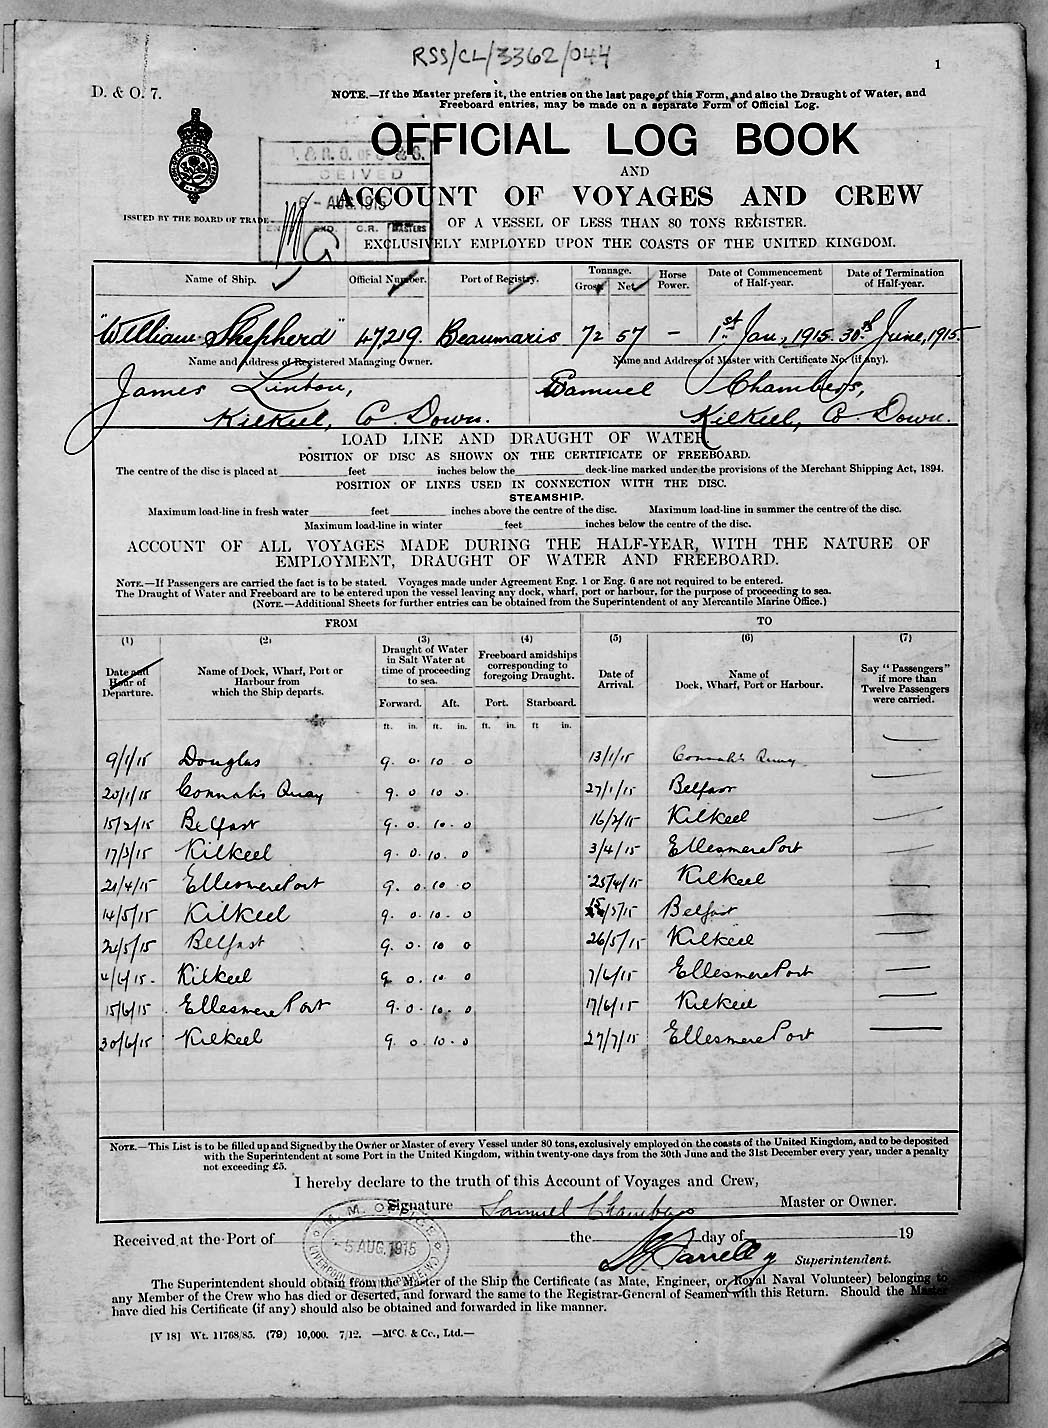 RSS/CL/3362/044
1
D. & O. 7.
NOTE.—If the Master prefers it, the entries on the last page of this Form, and also the Draught of Water, and
Freeboard entries, may be made on a separate Form of Official Log.
OFFICIAL LOG BOOK
AND
ACCOUNT OF VOYAGES AND CREW
OF A VESSEL OF LESS THAN 80 TONS REGISTER.
EXCLUSIVELY EMPLOYED UPON THE COASTS OF THE UNITED KINGDOM.
ISSUED BY THE BOARD OF TRADE.
6 - AUG. 1915
C.R. MASTERS
Name of Ship. Official Number. Port of Registry. Tonnage. Gross Net. Horse Power. Date of Commencement of Half-year. Date of Termination of Half-year.
"William Shepherd" 47219. Beaumaris 72 57 – 1st Jan, 1915. 30th June, 1915.
Name and Address of Registered Managing Owner. Name and Address of Master with Certificate No. (if any).
James Linton, Samuel Chambers,
Kilkeel, Co. Down. Kilkeel, Co Down.
LOAD LINE AND DRAUGHT OF WATER.
POSITION OF DISC AS SHOWN ON THE CERTIFICATE OF FREEBOARD.
The centre of the disc is placed at feet inches below the deck-line marked under the provisions of the Merchant Shipping Act, 1894.
POSITION OF LINES USED IN CONNECTION WITH THE DISC.
STEAMSHIP.
Maximum load-line in fresh water feet inches above the centre of the disc. Maximum load-line in summer the centre of the disc.
Maximum load-line in winter feet inches below the centre of the disc.
ACCOUNT OF ALL VOYAGES MADE DURING THE HALF-YEAR, WITH THE NATURE OF
EMPLOYMENT, DRAUGHT OF WATER AND FREEBOARD.
NOTE.—If Passengers are carried the fact is to be stated. Voyages made under Agreement Eng. 1 or Eng. 6 are not required to be entered.
The Draught of Water and Freeboard are to be entered upon the vessel leaving any dock, wharf, port or harbour, for the purpose of proceeding to sea.
(NOTE.—Additional Sheets for further entries can be obtained from the Superintendent of any Mercantile Marine Office.)
FROM TO
(1) (2) (3) (4) (5) (6) (7)
Date and Hour of Departure. Name of Dock, Wharf, Port or Harbour from which the Ship departs. Draught of Water in Salt Water at time of proceeding to sea. Freeboard amidships corresponding to foregoing Draught. Date of Arrival. Name of Dock, Wharf, Port or Harbour. Say "Passengers" if more than Twelve Passengers were carried.
Forward. Aft. Port. Starboard.
ft. in. ft. in. ft. in. ft in.
9/1/15 Douglas 9. 0. 10 0 13/1/15 Connah's Quay —
20/1/15 Connah's Quay 9. 0 10 0. 27/1/15 Belfast —
15/2/15 Belfast 9. 0. 10. 0 16/2/15 Kilkeel —
17/3/15 Kilkeel 9. 0. 10. 0 3/4/15 Ellesmere Port —
21/4/15 Ellesmere Port 9. 0. 10 0 25/4/15 Kilkeel —
14/5/15 Kilkeel 9. 0 10. 0 15/5/15 Belfast —
24/5/15 Belfast 9. 0. 10 0 26/5/15 Kilkeel —
4/6/15. Kilkeel 9 0. 10. 0 7/6/15 Ellesmere Port —
15/6/15 Ellesmere Port 9. 0. 10. 0 17/6/15 Kilkeel —
30/6/15 Kilkeel 9. 0 10. 0 27/7/15 Ellesmere Port —
NOTE.—This List is to be filled up and Signed by the Owner or Master of every Vessel under 80 tons, exclusively employed on the coasts of the United Kingdom, and to be deposited
with the Superintendent at some Port in the United Kingdom, within twenty-one days from the 30th June and the 31st December every year, under a penalty
not exceeding £5.
I hereby declare to the truth of this Account of Voyages and Crew,
Signature Samuel Chambers Master or Owner.
M. M. OFFICE
5 AUG. 1915
LIVERPOOL
Received at the Port of the day of 19
Farrelly Superintendent.
The Superintendent should obtain from the Master of the Ship the Certificate (as Mate, Engineer, or Royal Naval Volunteer) belonging to
any Member of the Crew who has died or deserted, and forward the same to the Registrar-General of Seamen with this Return. Should the Master
have died his Certificate (if any) should also be obtained and forwarded in like manner.
[V 18] Wt. 11768/85. (79) 10,000. 7/12. —McC. & Co., Ltd.—